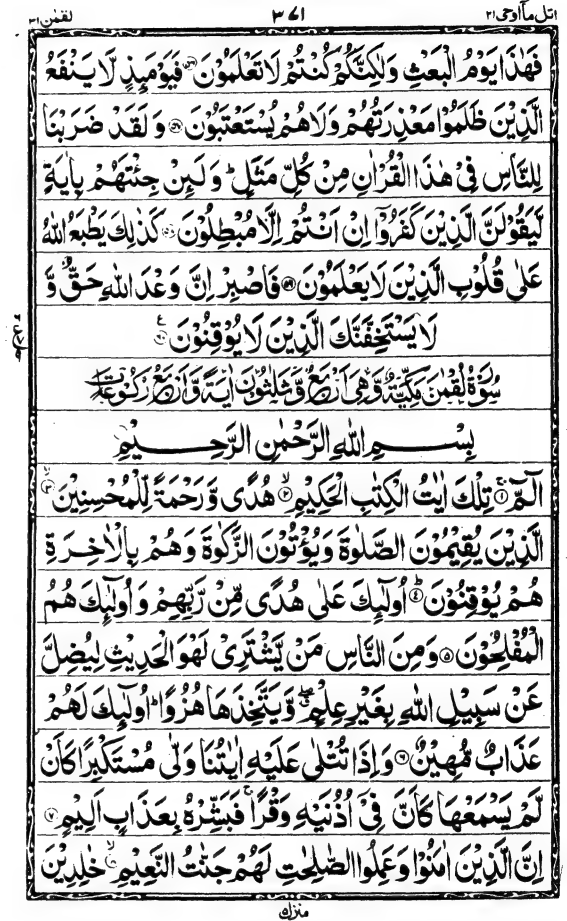 اتل مآ اوحی ۲۱ ۳۷۱ لقمٰن ۳۱
فَهٰذَا يَوْمُ الْبَعْثِ وَلٰكِنَّكُمْ كُنْتُمْ لَا تَعْلَمُوْنَ ۝۵۶ فَيَوْمَئِذٍ لَّا يَنْفَعُ
الَّذِيْنَ ظَلَمُوْا مَعْذِرَتُهُمْ وَلَا هُمْ يُسْتَعْتَبُوْنَ ۝۵۷ وَلَقَدْ ضَرَبْنَا
لِلنَّاسِ فِيْ هٰذَا الْقُرْاٰنِ مِنْ كُلِّ مَثَلٍ ؕ وَلَئِنْ جِئْتَهُمْ بِاٰيَةٍ
لَّيَقُوْلَنَّ الَّذِيْنَ كَفَرُوْٓا اِنْ اَنْتُمْ اِلَّا مُبْطِلُوْنَ ۝۵۸ كَذٰلِكَ يَطْبَعُ اللّٰهُ
عَلٰى قُلُوْبِ الَّذِيْنَ لَا يَعْلَمُوْنَ ۝۵۹ فَاصْبِرْ اِنَّ وَعْدَ اللّٰهِ حَقٌّ وَّ
لَا يَسْتَخِفَّنَّكَ الَّذِيْنَ لَا يُوْقِنُوْنَ ۝۶۰
سُوْرَةُ لُقْمٰنَ مَكِّيَّةٌ وَّهِيَ اَرْبَعٌ وَّثَلٰثُوْنَ اٰيَةً وَّاَرْبَعُ رُكُوْعَاتٍ
بِسْمِ اللّٰهِ الرَّحْمٰنِ الرَّحِيْمِ
الٓمّٓ ۝۱ تِلْكَ اٰيٰتُ الْكِتٰبِ الْحَكِيْمِ ۝۲ هُدًى وَّرَحْمَةً لِّلْمُحْسِنِيْنَ ۝۳
الَّذِيْنَ يُقِيْمُوْنَ الصَّلٰوةَ وَيُؤْتُوْنَ الزَّكٰوةَ وَهُمْ بِالْاٰخِرَةِ
هُمْ يُوْقِنُوْنَ ۝۴ اُولٰٓئِكَ عَلٰى هُدًى مِّنْ رَّبِّهِمْ وَاُولٰٓئِكَ هُمُ
الْمُفْلِحُوْنَ ۝۵ وَمِنَ النَّاسِ مَنْ يَّشْتَرِيْ لَهْوَ الْحَدِيْثِ لِيُضِلَّ
عَنْ سَبِيْلِ اللّٰهِ بِغَيْرِ عِلْمٍ وَّيَتَّخِذَهَا هُزُوًا ؕ اُولٰٓئِكَ لَهُمْ
عَذَابٌ مُّهِيْنٌ ۝۶ وَاِذَا تُتْلٰى عَلَيْهِ اٰيٰتُنَا وَلّٰى مُسْتَكْبِرًا كَاَنْ
لَّمْ يَسْمَعْهَا كَاَنَّ فِيْٓ اُذُنَيْهِ وَقْرًا ۚ فَبَشِّرْهُ بِعَذَابٍ اَلِيْمٍ ۝۷
اِنَّ الَّذِيْنَ اٰمَنُوْا وَعَمِلُوا الصّٰلِحٰتِ لَهُمْ جَنّٰتُ النَّعِيْمِ ۝۸ خٰلِدِيْنَ